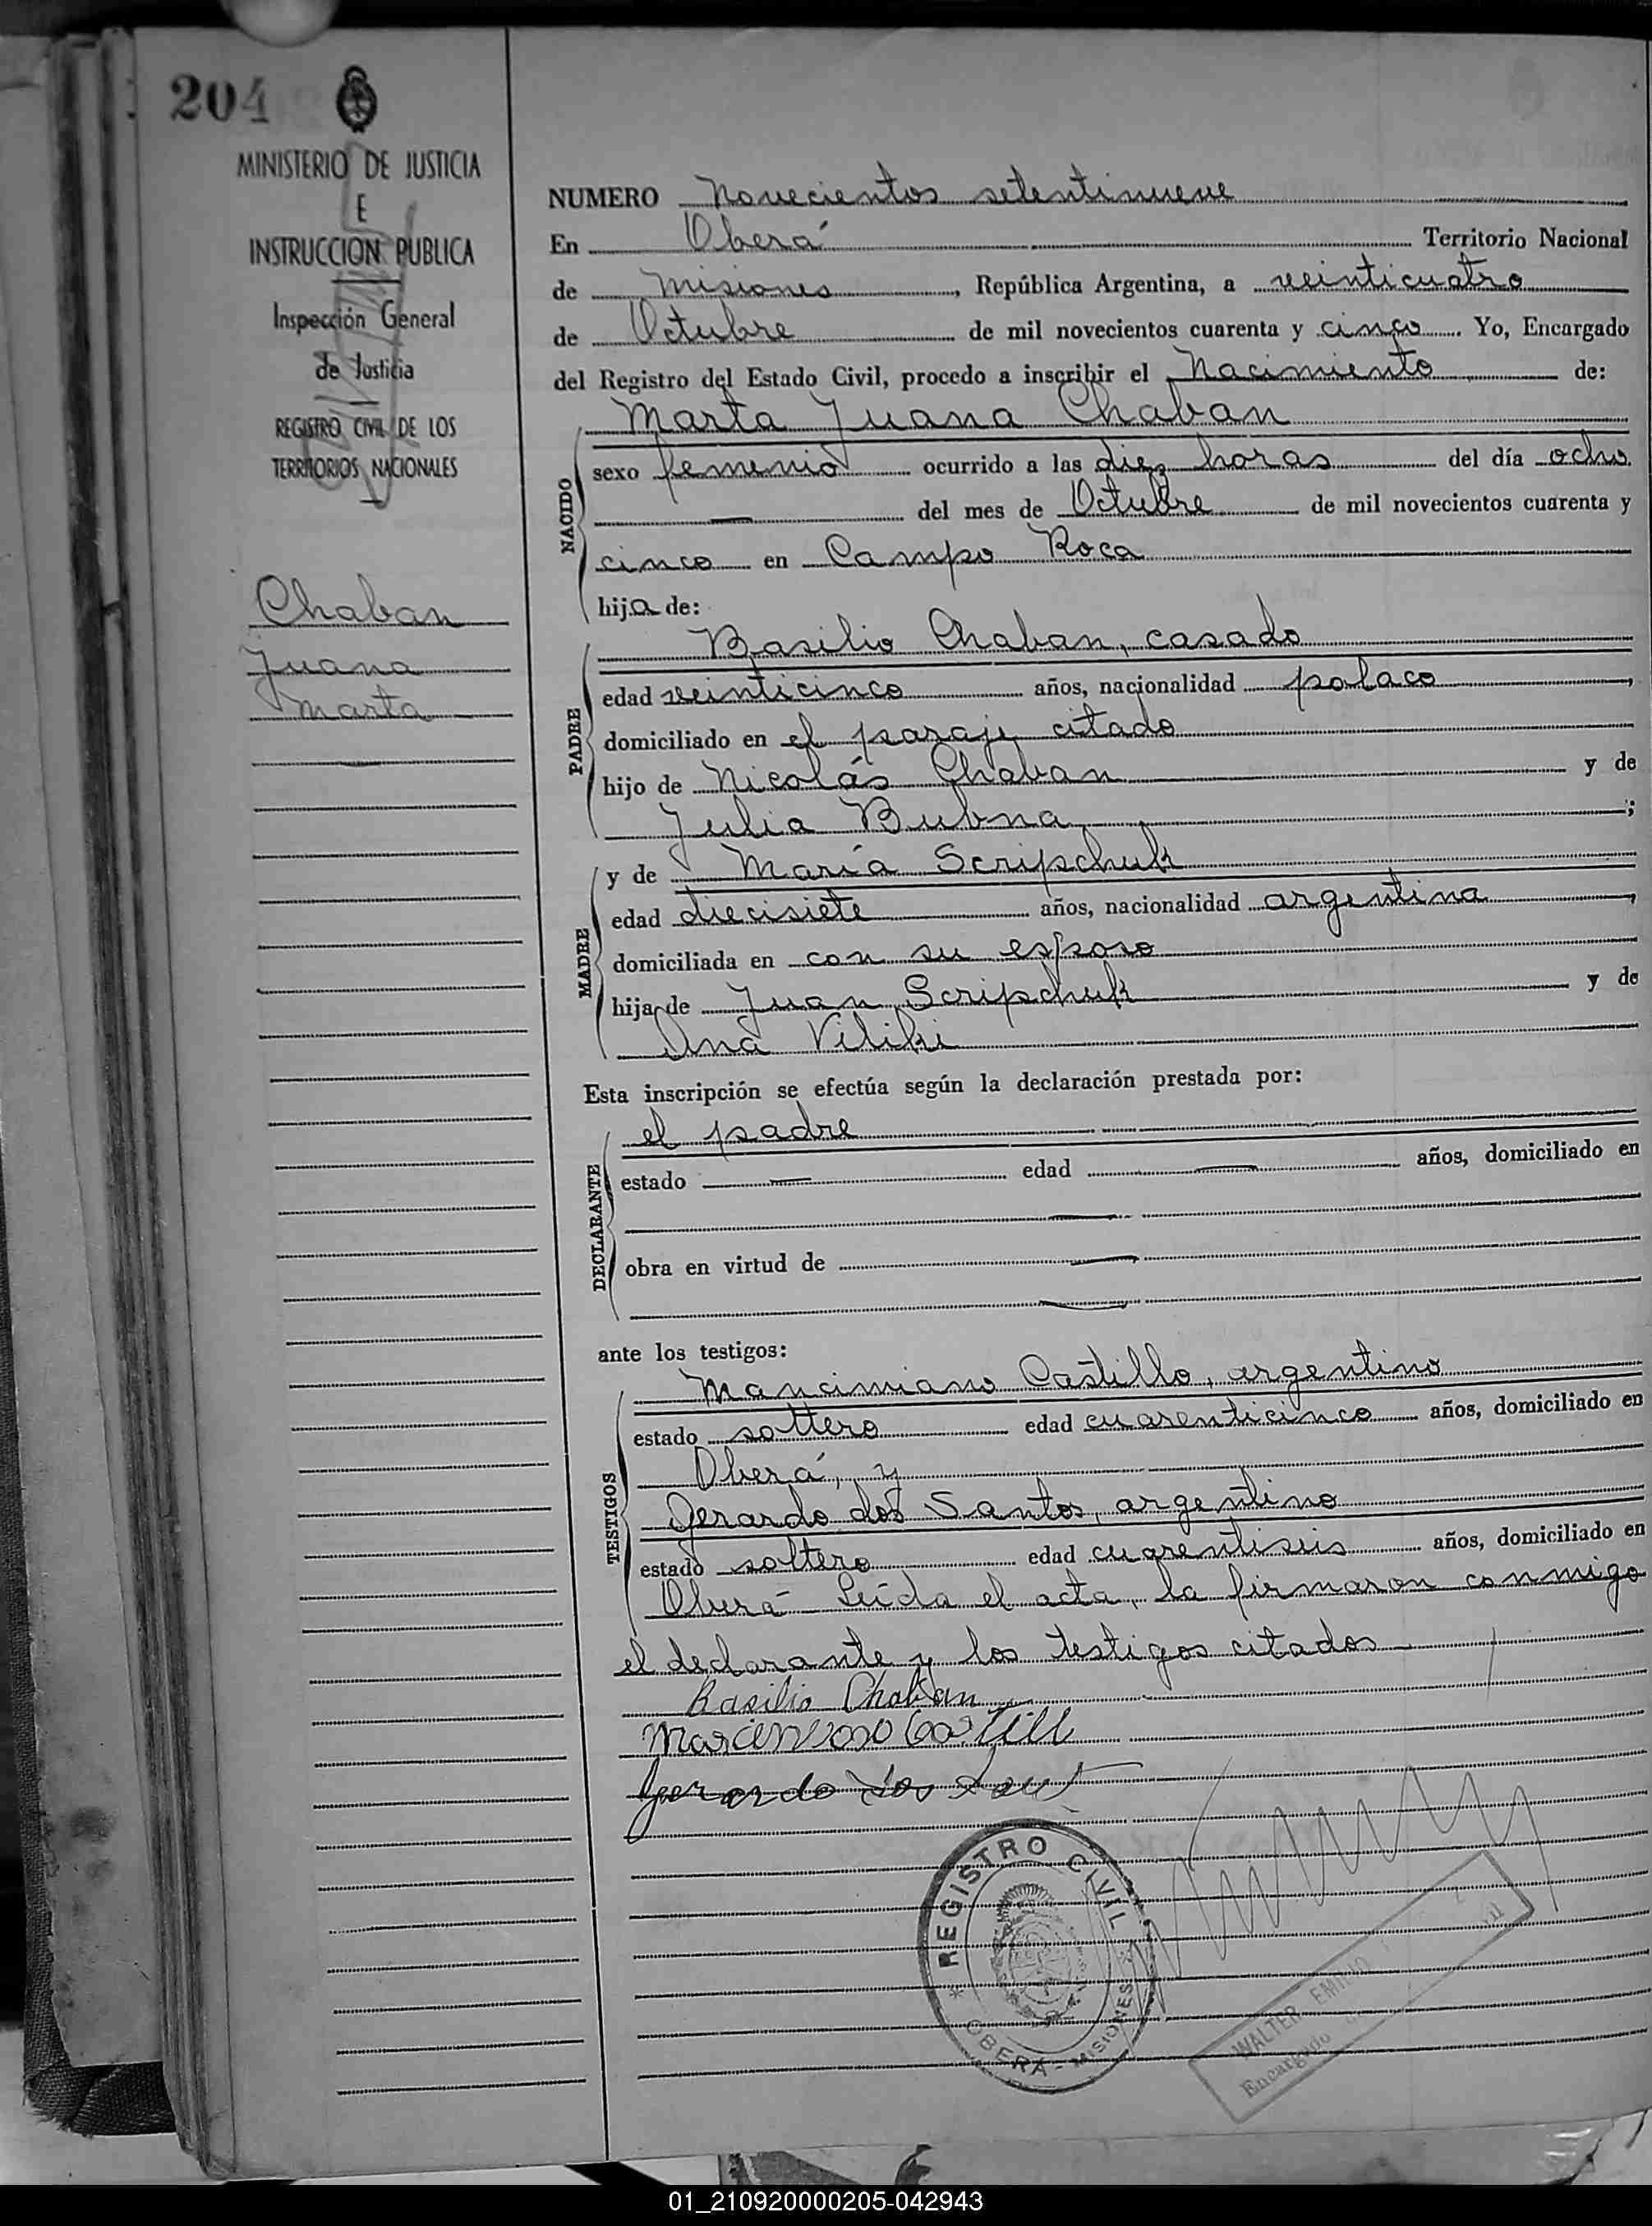 204
MINISTERIO DE JUSTICIA
E
INSTRUCCION PUBLICA
Inspección General
de Justicia
REGISTRO CIVIL DE LOS
TERRITORIOS NACIONALES
Chaban
Juana
Marta
NUMERO Novecientos setentinueve
En Oberá Territorio Nacional
de Misiones, República Argentina, a veinticuatro
de Octubre de mil novecientos cuarenta y cinco. Yo, Encargado
del Registro del Estado Civil, procedo a inscribir el Nacimiento de:
NACIDO
Marta Juana Chaban
sexo femenio ocurrido a las diez horas del día ocho
— del mes de Octubre de mil novecientos cuarenta y
cinco en Campo Roca
hija de:
PADRE
Basilio Chaban, casado
edad veinticinco años, nacionalidad polaco,
domiciliado en el paraje citado
hijo de Nicolás Chaban y de
Julia Bubna;
MADRE
y de María Scripchuk
edad diecisiete años, nacionalidad argentina,
domiciliada en con su esposo
hija de Juan Scripchuk y de
Ana Viliki
Esta inscripción se efectúa según la declaración prestada por:
DECLARANTE
el padre
estado — edad — años, domiciliado en
—
obra en virtud de —
—
ante los testigos:
TESTIGOS
Mancimiano Castillo, argentino
estado soltero edad cuarenticinco años, domiciliado en
Oberá, y
Gerardo dos Santos, argentino
estado soltero edad cuarentiseis años, domiciliado en
Oberá - Leída el acta, la firmaron conmigo
el declarante y los testigos citados
Basilio Chaban
Gerardo dos
REGISTRO CIVIL
OBERÁ - MISIONES
WALTER EMILIO
Encargado
01_210920000205-042943